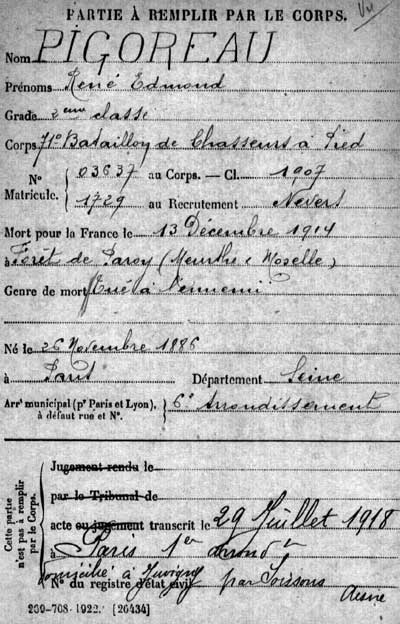 PARTIE À REMPLIR PAR LE CORPS.
Nom PIGOREAU
Prénoms René Edmond
Grade 2eme classe
Corps 71e Bataillon de Chasseurs à Pied
N° Matricule. { 03637 au Corps. — Cl. 1907
1729 au Recrutement Nevers
Mort pour la France le 13 Décembre 1914
à Forêt de Paroy (Meurthe & Moselle)
Genre de mort Tué à l'ennemi
Né le 26 Novembre 1886
à Paris Département Seine
Arrt municipal (pr Paris et Lyon), à défaut rue et N°. } 6e Arrondissement
Cette partie n'est pas à remplir par le Corps.
Jugement rendu le
par le Tribunal de
acte ou jugement transcrit le 29 Juillet 1918
à Paris 1er arrondt
domicilié à Juvigny par Soissons Aisne
N° du registre d'état civil
239-708-1922. [26434]